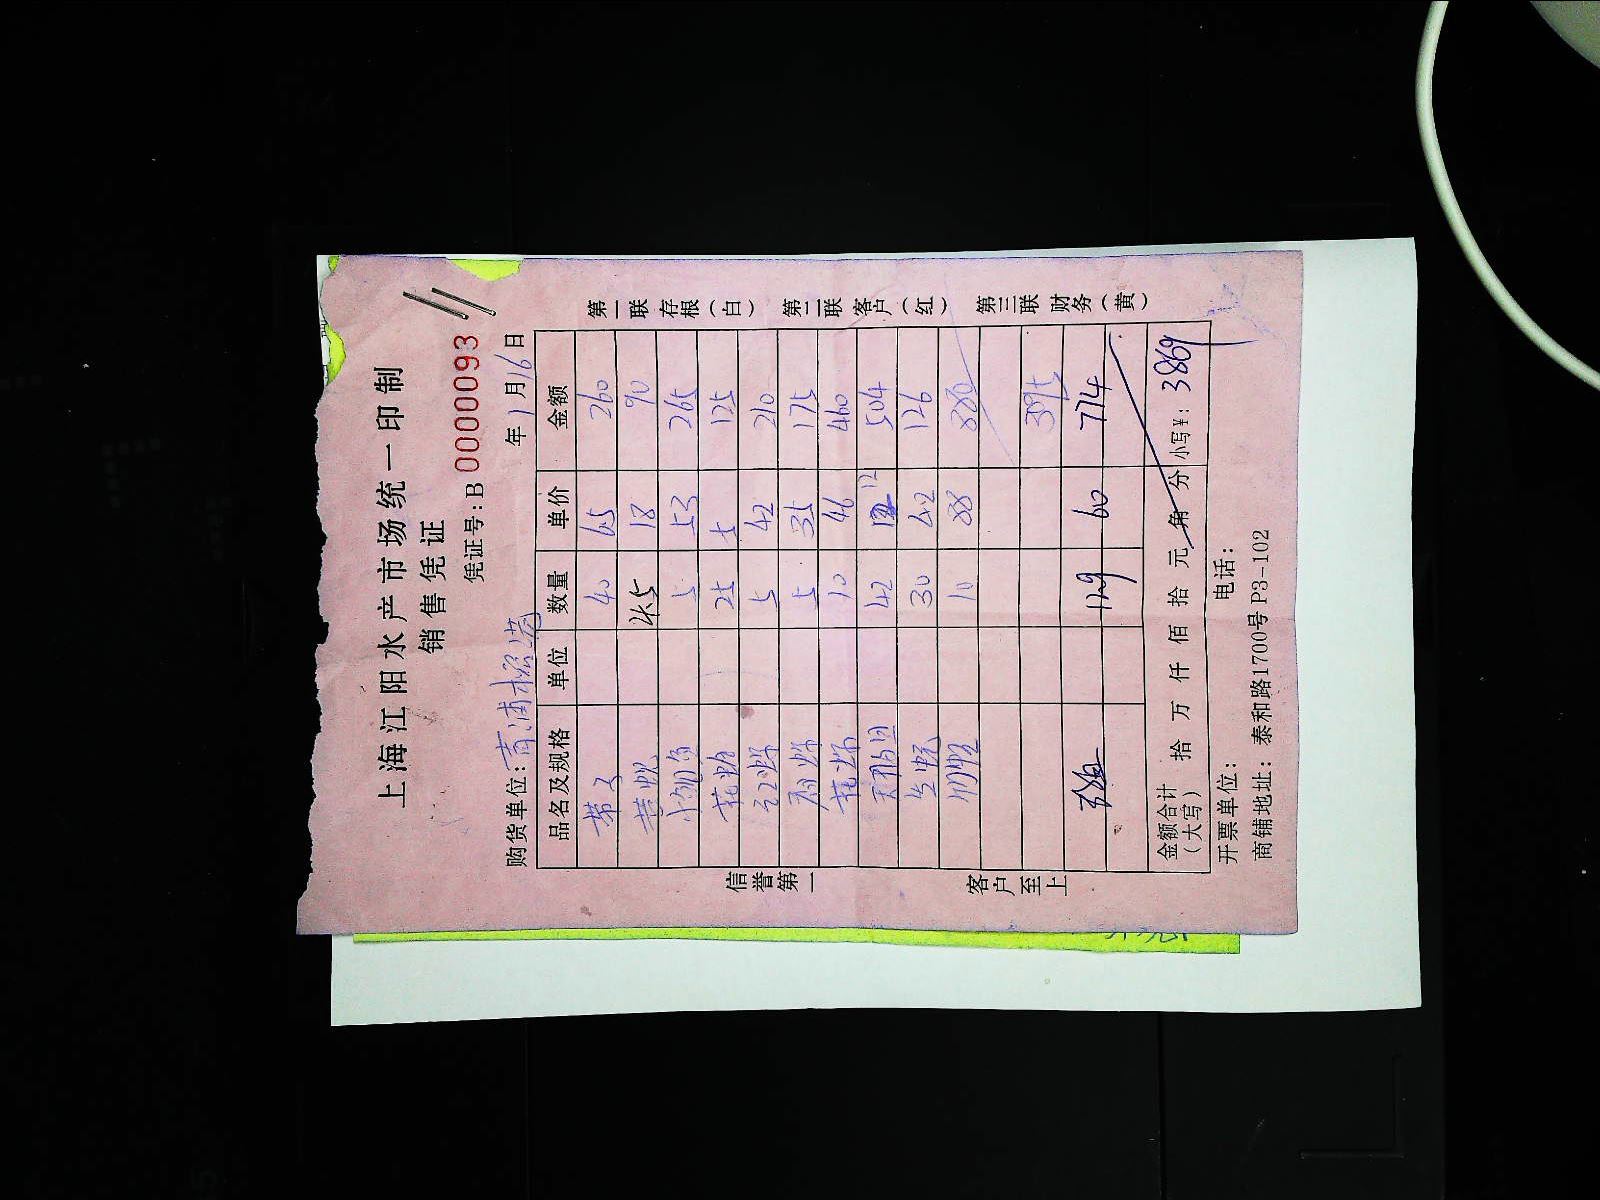 上海江阳水产市场统一印制
销售凭证
凭证号：B 0000093
购货单位：青浦 年1月16日
品名及规格 单位 数量 单价 金额
带子 40 65 260
4.5 18 90
5 53 265
花蛤 25 5 125
5 42 210
5 35 175
10 46 460
42 12 504
30 42 126
10 88 880
395
12.9 60 774
金额合计（大写） 拾 万 仟 佰 拾 元 角 分 小写¥：3869
开票单位： 电话：
商铺地址：泰和路1700号P3-102
信誉第一 客户至上
第一联 存根（白） 第二联 客户（红） 第三联 财务（黄）